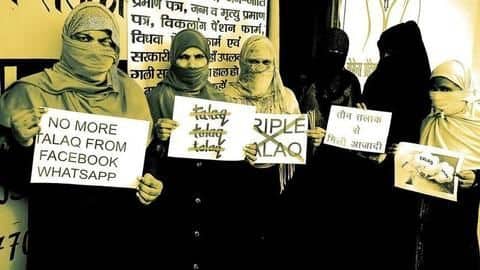 पत्र, जन्म व मृत्यु प्रमाण
पत्र, विकलांग पेंशन फार्म,
विधवा
फार्म एवं
सरकारी
हाँ उपल
गली
हाल हो
NO MORE
TALAQ FROM
FACEBOOK
WHATSAPP
talaq
talaq
talaq
RIPLE
ALAQ
तीन तलाक
से
मिली आजादी